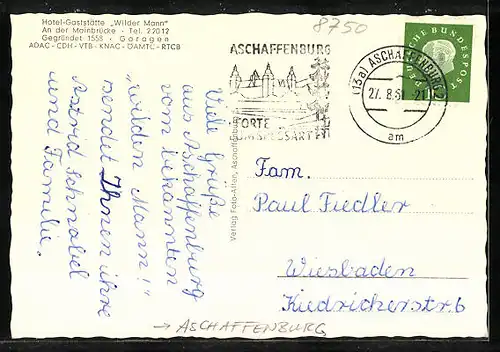 Hotel-Gaststätte „Wilder Mann"
An der Mainbrücke - Tel. 22012
Gegründet 1558 - Garagen
ADAC - CDH - VTB - KNAC - ÖAMTC - RTCB
8750
ASCHAFFENBURG
PFORTE
ZUM SPESSART
(13a) ASCHAFFENBURG
27. 8. 61
am
DEUTSCHE BUNDESPOST
Viele Grüße
aus Aschaffenburg
vom bekannten
„wilden Mann!"
sendet Ihnen ihre
Astrid Schnabel
und Familie.
Verlag: Foto-Alfen, Aschaffenburg
Fam.
Paul Fiedler
Wiesbaden
Kiedricherstr. 6
→ ASCHAFFENBURG